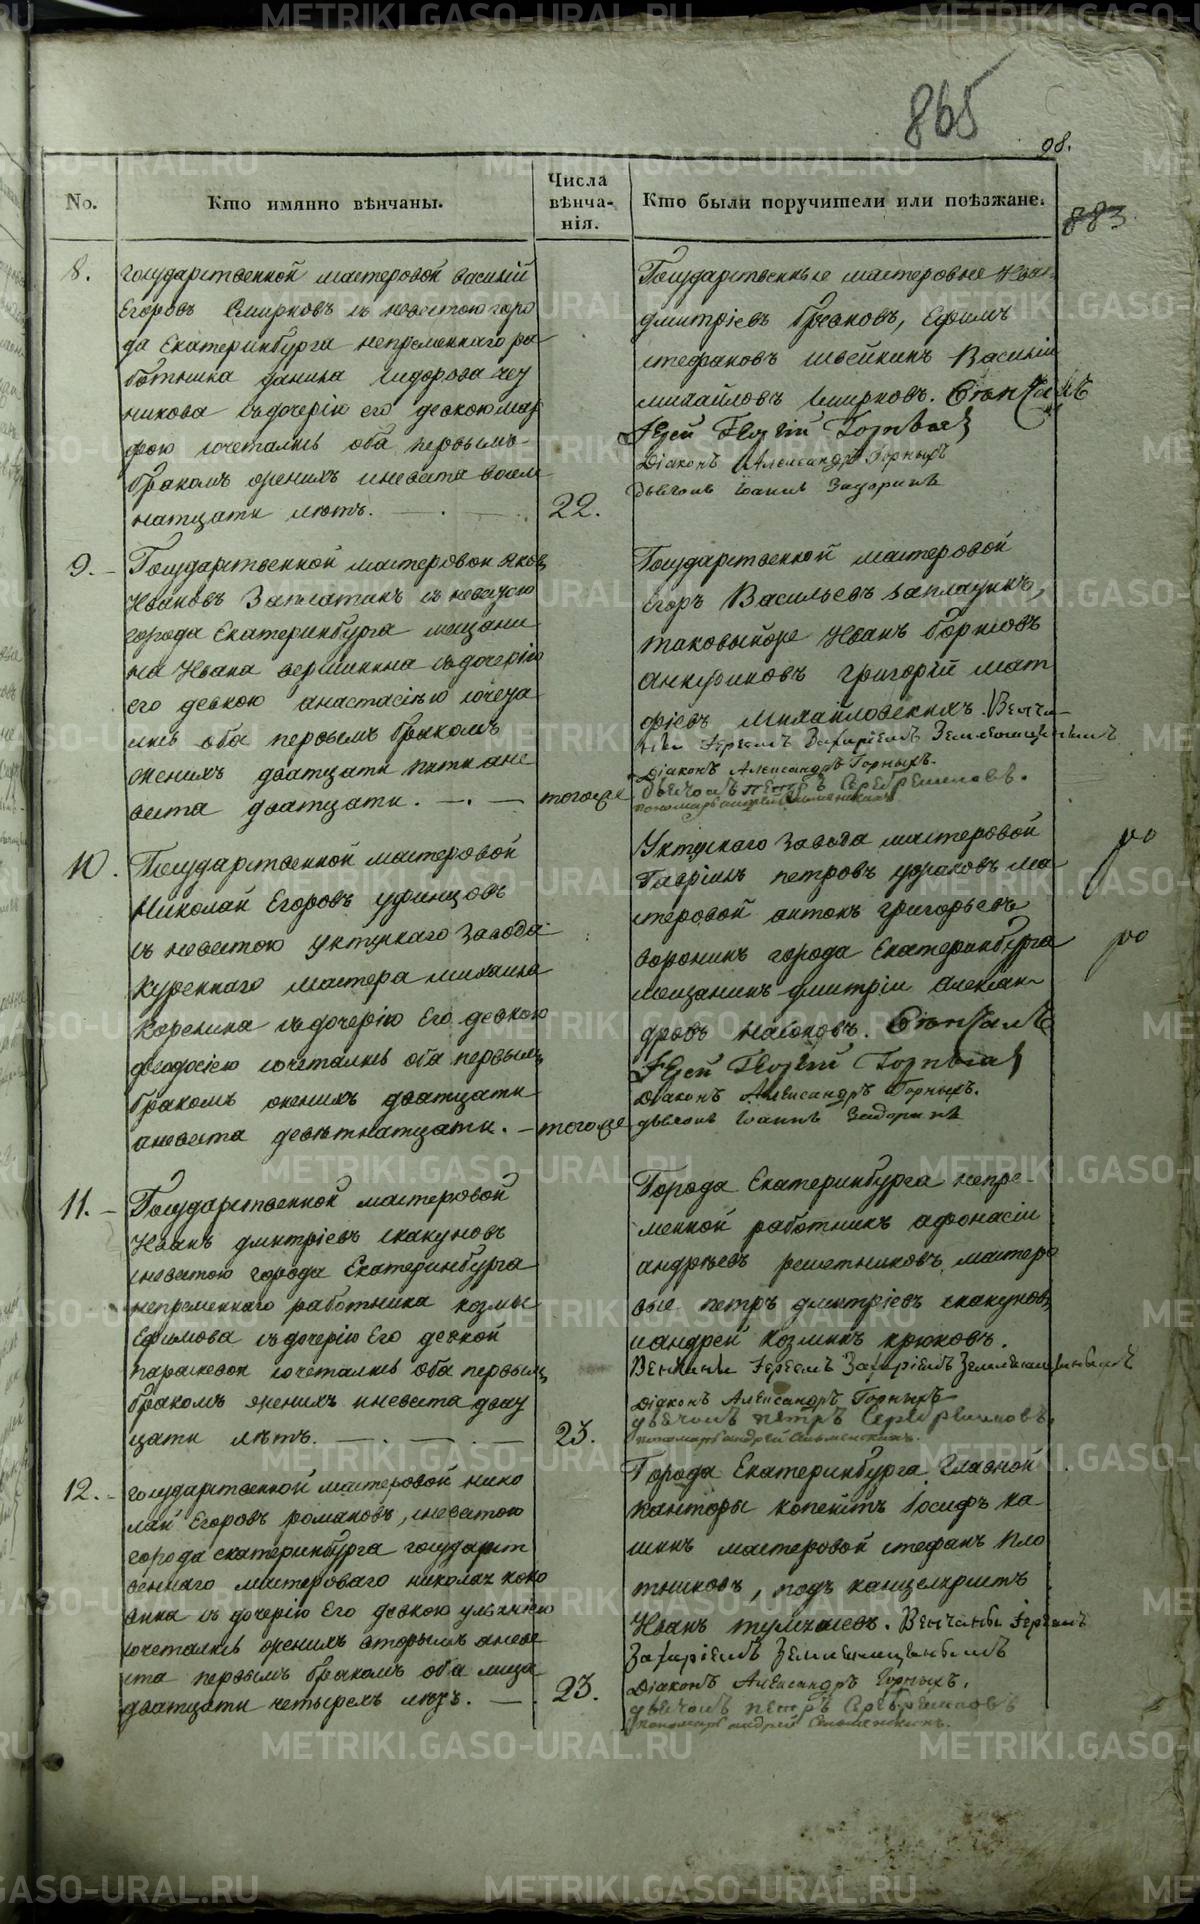 865
98.
883
No.
Кто имянно вѣнчаны.
Числа вѣнча-нія.
Кто были поручители или поѣзжане.
8.
государственной мастеровой василій
Егоровъ Смирновъ съ невестою горо
да Екатеринбурга непременнаго ра
ботника данила сидорова
никова съдочерію его девкою мар
фою сочетались оба первымъ
бракомъ женихъ иневеста восем
натцати лѣтъ.
22.
Государственные мастеровые Иван
дмитріевъ Ефимъ
стефановъ швейкинъ Василій
михайловъ Смирновъ.
Іерей Георгій
Діаконъ Александръ Горныхъ
дьячокъ Іоаннъ Задоринъ
9.
Государственной мастеровой яков
Ивановъ Заплатинъ съ невестою
города Екатеринбурга мещани
на Ивана вершинина съдочерію
его девкою анастасіею сочета
лись оба первымъ бракомъ
женихъ дватцати пяти ане
веста дватцати.
тогоже
Государственной мастеровой
Егоръ Васильевъ
таковыйже Иванъ борисовъ
Григорій мат
фіевъ михайловскихъ. Венча-
ны Іереемъ Захаріемъ Земляницынымъ
Діаконъ Александръ Горныхъ.
дьячокъ петръ Серебренниковъ.
пономарь андрей
10.
Государственной мастеровой
Николай Егоровъ уфинцовъ
съ невестою уктускаго завода
куреннаго мастера михаила
коренина съдочерію Его девкою
феодосіею сочетались оба первым
бракомъ женихъ дватцати
аневеста девятнатцати.
тогоже
Уктускаго завода мастеровой
Гаврілъ петровъ ма
стеровой антонъ григорьевъ
воронинъ города Екатеринбурга
мещанинъ дмитрій алексан-
дровъ насоновъ.
Іерей Георгій
Діаконъ Александръ Горныхъ.
дьячокъ Іоаннъ Задоринъ
11.
Государственной мастеровой
Иванъ дмитріевъ скакуновъ
сневестою города Екатеринбурга
непременнаго работника козмы
Ефимова съдочерію Его девкой
параскевой сочетались оба первым
бракомъ женихъ иневеста двау
цати лѣтъ.
23.
Города Екатеринбурга непре-
менной работникъ афонасій
андрѣевъ решетниковъ, мастеро
вые петръ дмитріевъ скакунов,
иандрей козминъ крюковъ.
Венчаны Іереемъ Захаріемъ Земляницынымъ
Діаконъ Александръ Горныхъ
дьячокъ петръ Серебренниковъ.
пономарь андрей
12.
государственной мастеровой нико
лай Егоровъ романовъ, сневестою
города екатеринбурга государст
веннаго мастероваго николая
вина съ дочерію Его девкою уліяніею
сочетались женихъ вторымъ аневе
ста первымъ бракомъ оба лица
дватцати четырехъ лѣтъ.
23.
Города Екатеринбурга Главной
канторы копеистъ Іосифъ ка
шинъ мастеровой стефанъ пло
тниковъ, подъ канцеляристъ
Иванъ Венчаны Іереемъ
Захаріемъ Земляницынымъ
Діаконъ Александръ Горныхъ.
дьячокъ петръ Серебренниковъ
пономарь андрей